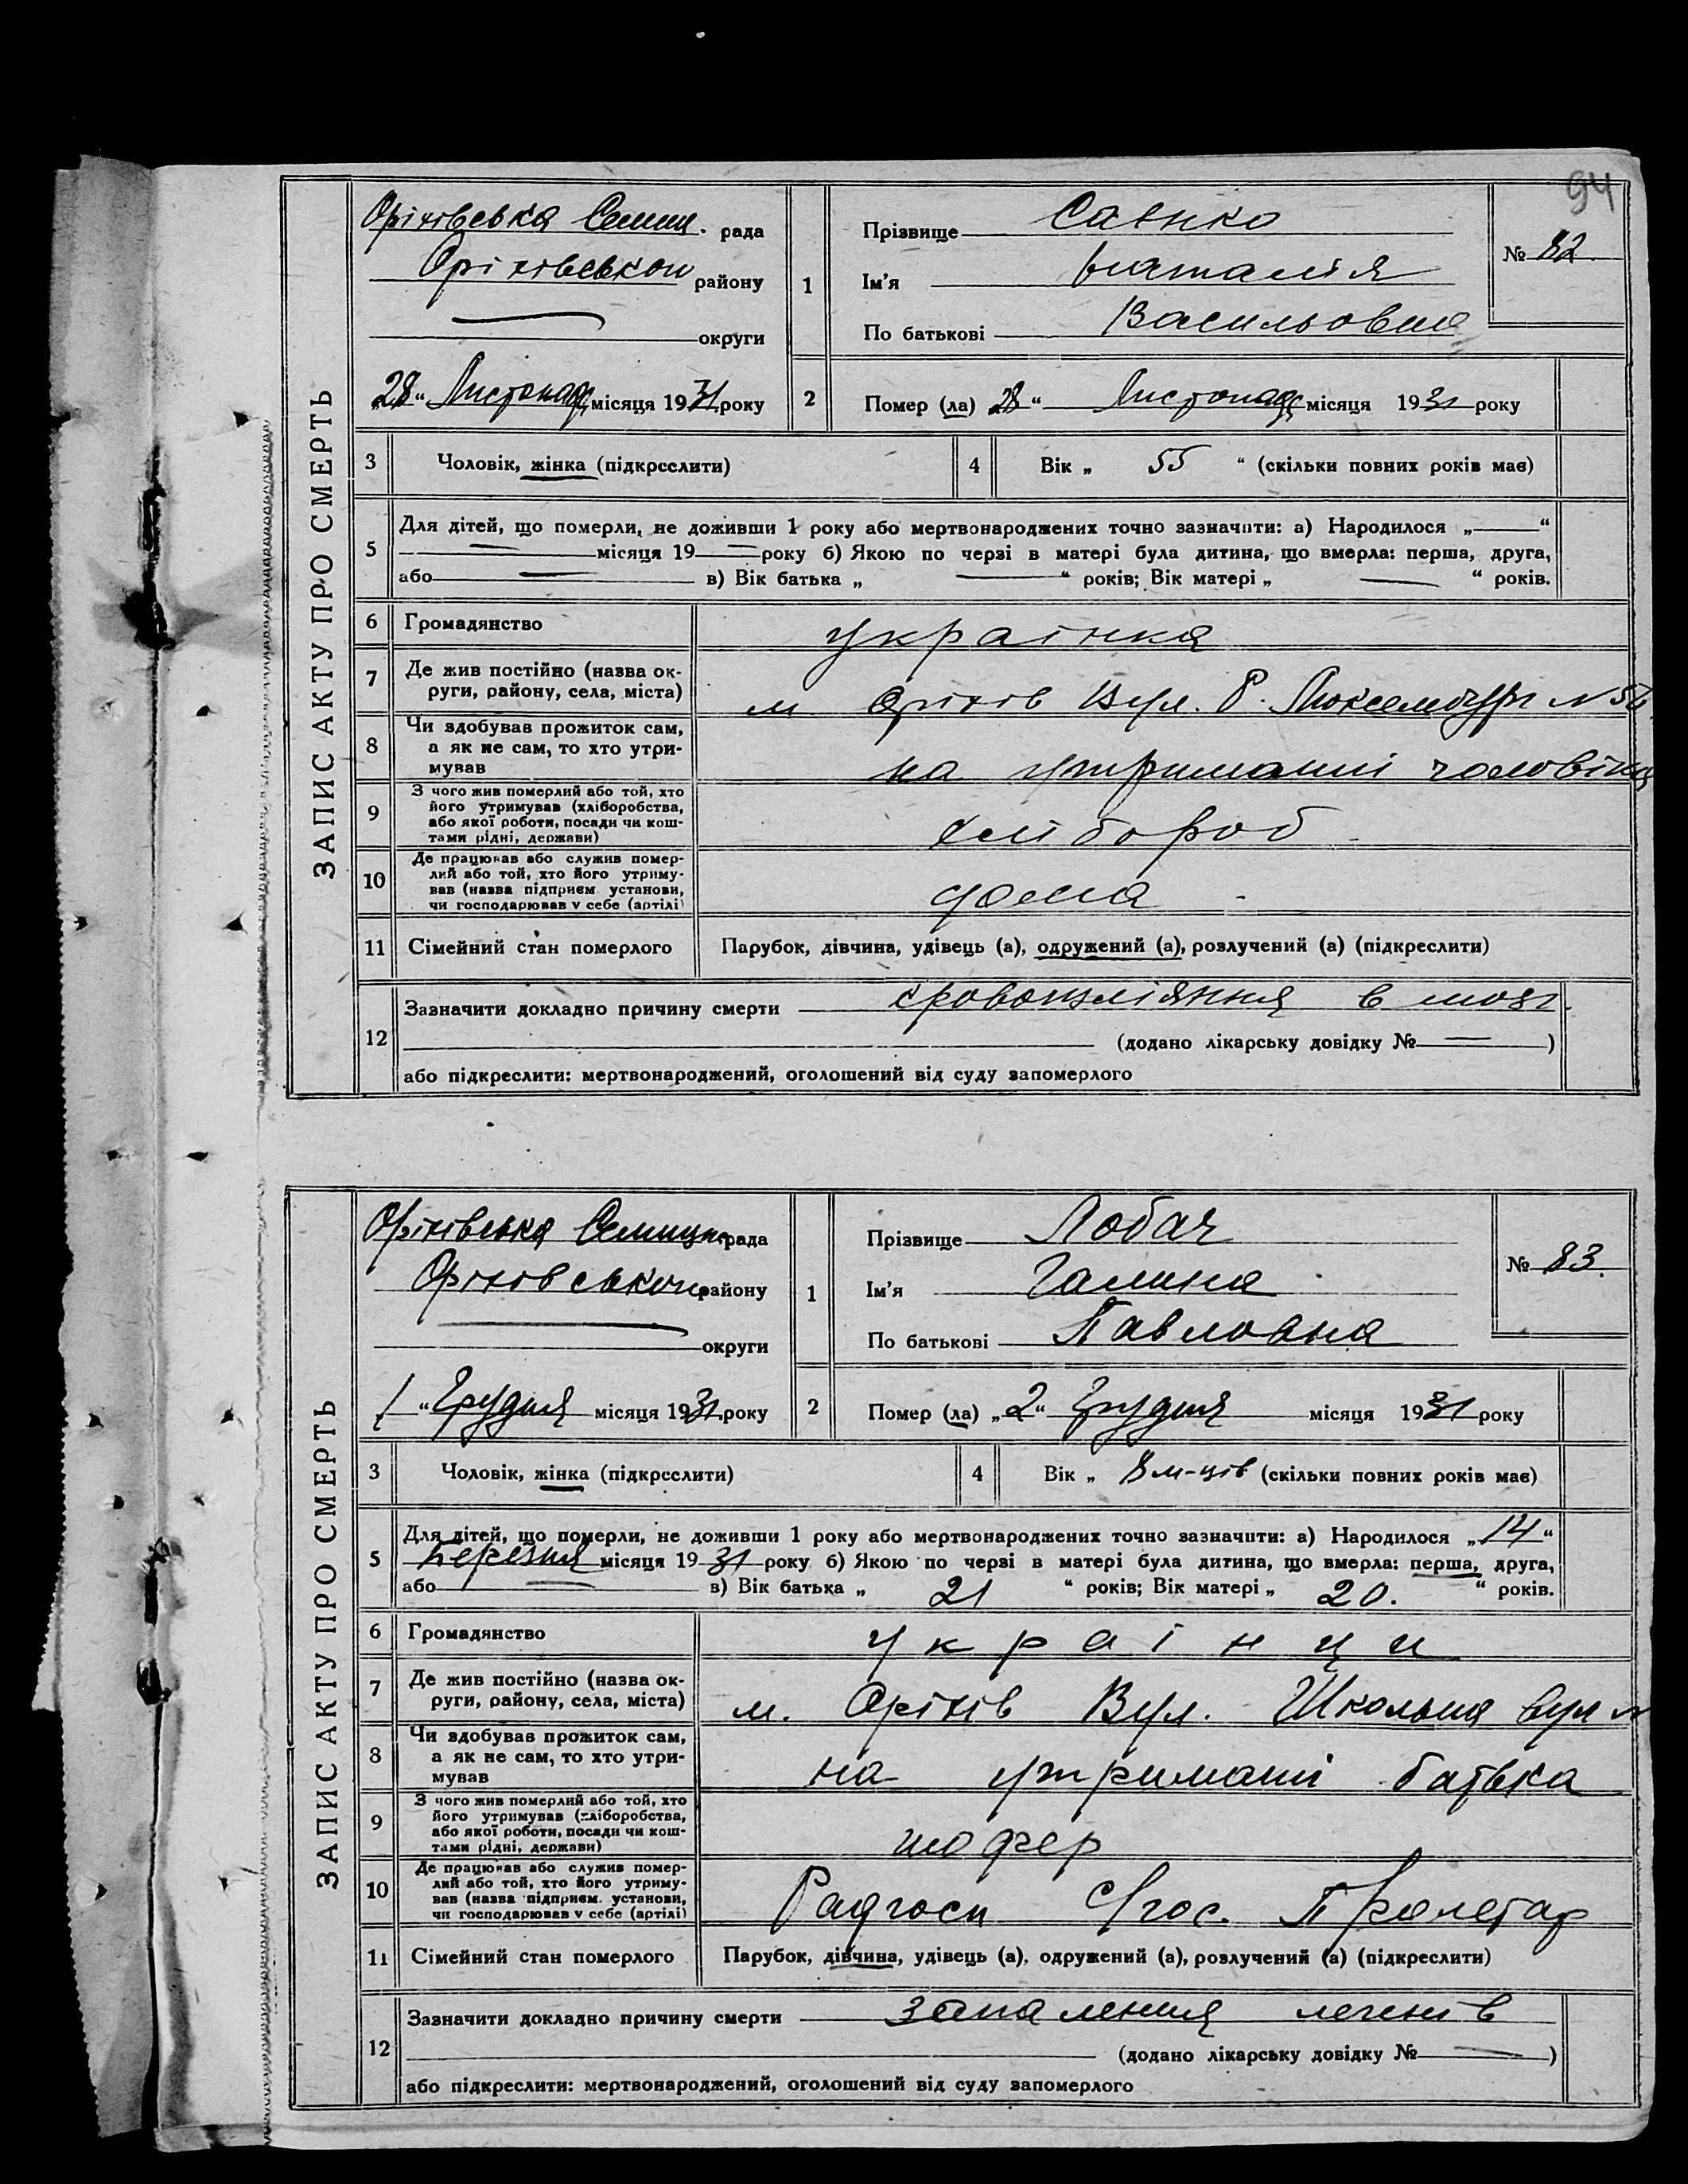 94
ЗАПИС АКТУ ПРО СМЕРТЬ
Оріхівська Селищ. рада
Оріхівської району
округи
„28“ Листопада місяця 1931 року
1
Прізвище Савнко
Ім'я Наталія
По батькові Васильовна
№ 82.
2 Помер (ла) „28“ Листопада місяця 1931 року
3 Чоловік, жінка (підкреслити)
4 Вік „ 55 “ (скільки повних років має)
5 Для дітей, що померли, не доживши 1 року або мертвонароджених точно зазначити: а) Народилося „—“
— місяця 19 — року б) Якою по черзі в матері була дитина, що вмерла: перша, друга,
або — в) Вік батька „ — “ років; Вік матері „ — “ років.
6 Громадянство українка
7 Де жив постійно (назва ок-
руги, району, села, міста) м Оріхів Вул. Р. Люксембург N
8 Чи здобував прожиток сам,
а як не сам, то хто утри-
мував на утриманні чоловіка
9 З чого жив померлий або той, хто
його утримував (хліборобства,
або якої роботи, посади чи кош-
тами рідні, держави) хлібороб
10 Де працював або служив помер-
лий або той, хто його утриму-
вав (назва підприєм. установи,
чи господарював у себе (артілі) дома
11 Сімейний стан померлого Парубок, дівчина, удівець (а), одружений (а), розлучений (а) (підкреслити)
12 Зазначити докладно причину смерти кровоизліяння в мозг.
(додано лікарську довідку № — )
або підкреслити: мертвонароджений, оголошений від суду запомерлого
ЗАПИС АКТУ ПРО СМЕРТЬ
Оріхівська Селищна рада
Оріхівської району
округи
1 “ Грудня місяця 1931 року
1
Прізвище Лобач
Ім'я Галина
По батькові Павловна
№ 83.
2 Помер (ла) „2“ Грудня місяця 1931 року
3 Чоловік, жінка (підкреслити)
4 Вік „ 8 м-ців (скільки повних років має)
5 Для дітей, що померли, не доживши 1 року або мертвонароджених точно зазначити: а) Народилося „14“
березня місяця 1931 року б) Якою по черзі в матері була дитина, що вмерла: перша, друга,
або — в) Вік батька „ 21 “ років; Вік матері „ 20. “ років.
6 Громадянство українци
7 Де жив постійно (назва ок-
руги, району, села, міста) м. Оріхів Вул. Школьна вул N
8 Чи здобував прожиток сам,
а як не сам, то хто утри-
мував на утриманні батька
9 З чого жив померлий або той, хто
його утримував (хліборобства,
або якої роботи, посади чи кош-
тами рідні, держави) шофер
10 Де працював або служив помер-
лий або той, хто його утриму-
вав (назва підприєм. установи,
чи господарював у себе (артілі) Радгосп Пролетар
11 Сімейний стан померлого Парубок, дівчина, удівець (а), одружений (а), розлучений (а) (підкреслити)
12 Зазначити докладно причину смерти запалення легенів
(додано лікарську довідку № — )
або підкреслити: мертвонароджений, оголошений від суду запомерлого